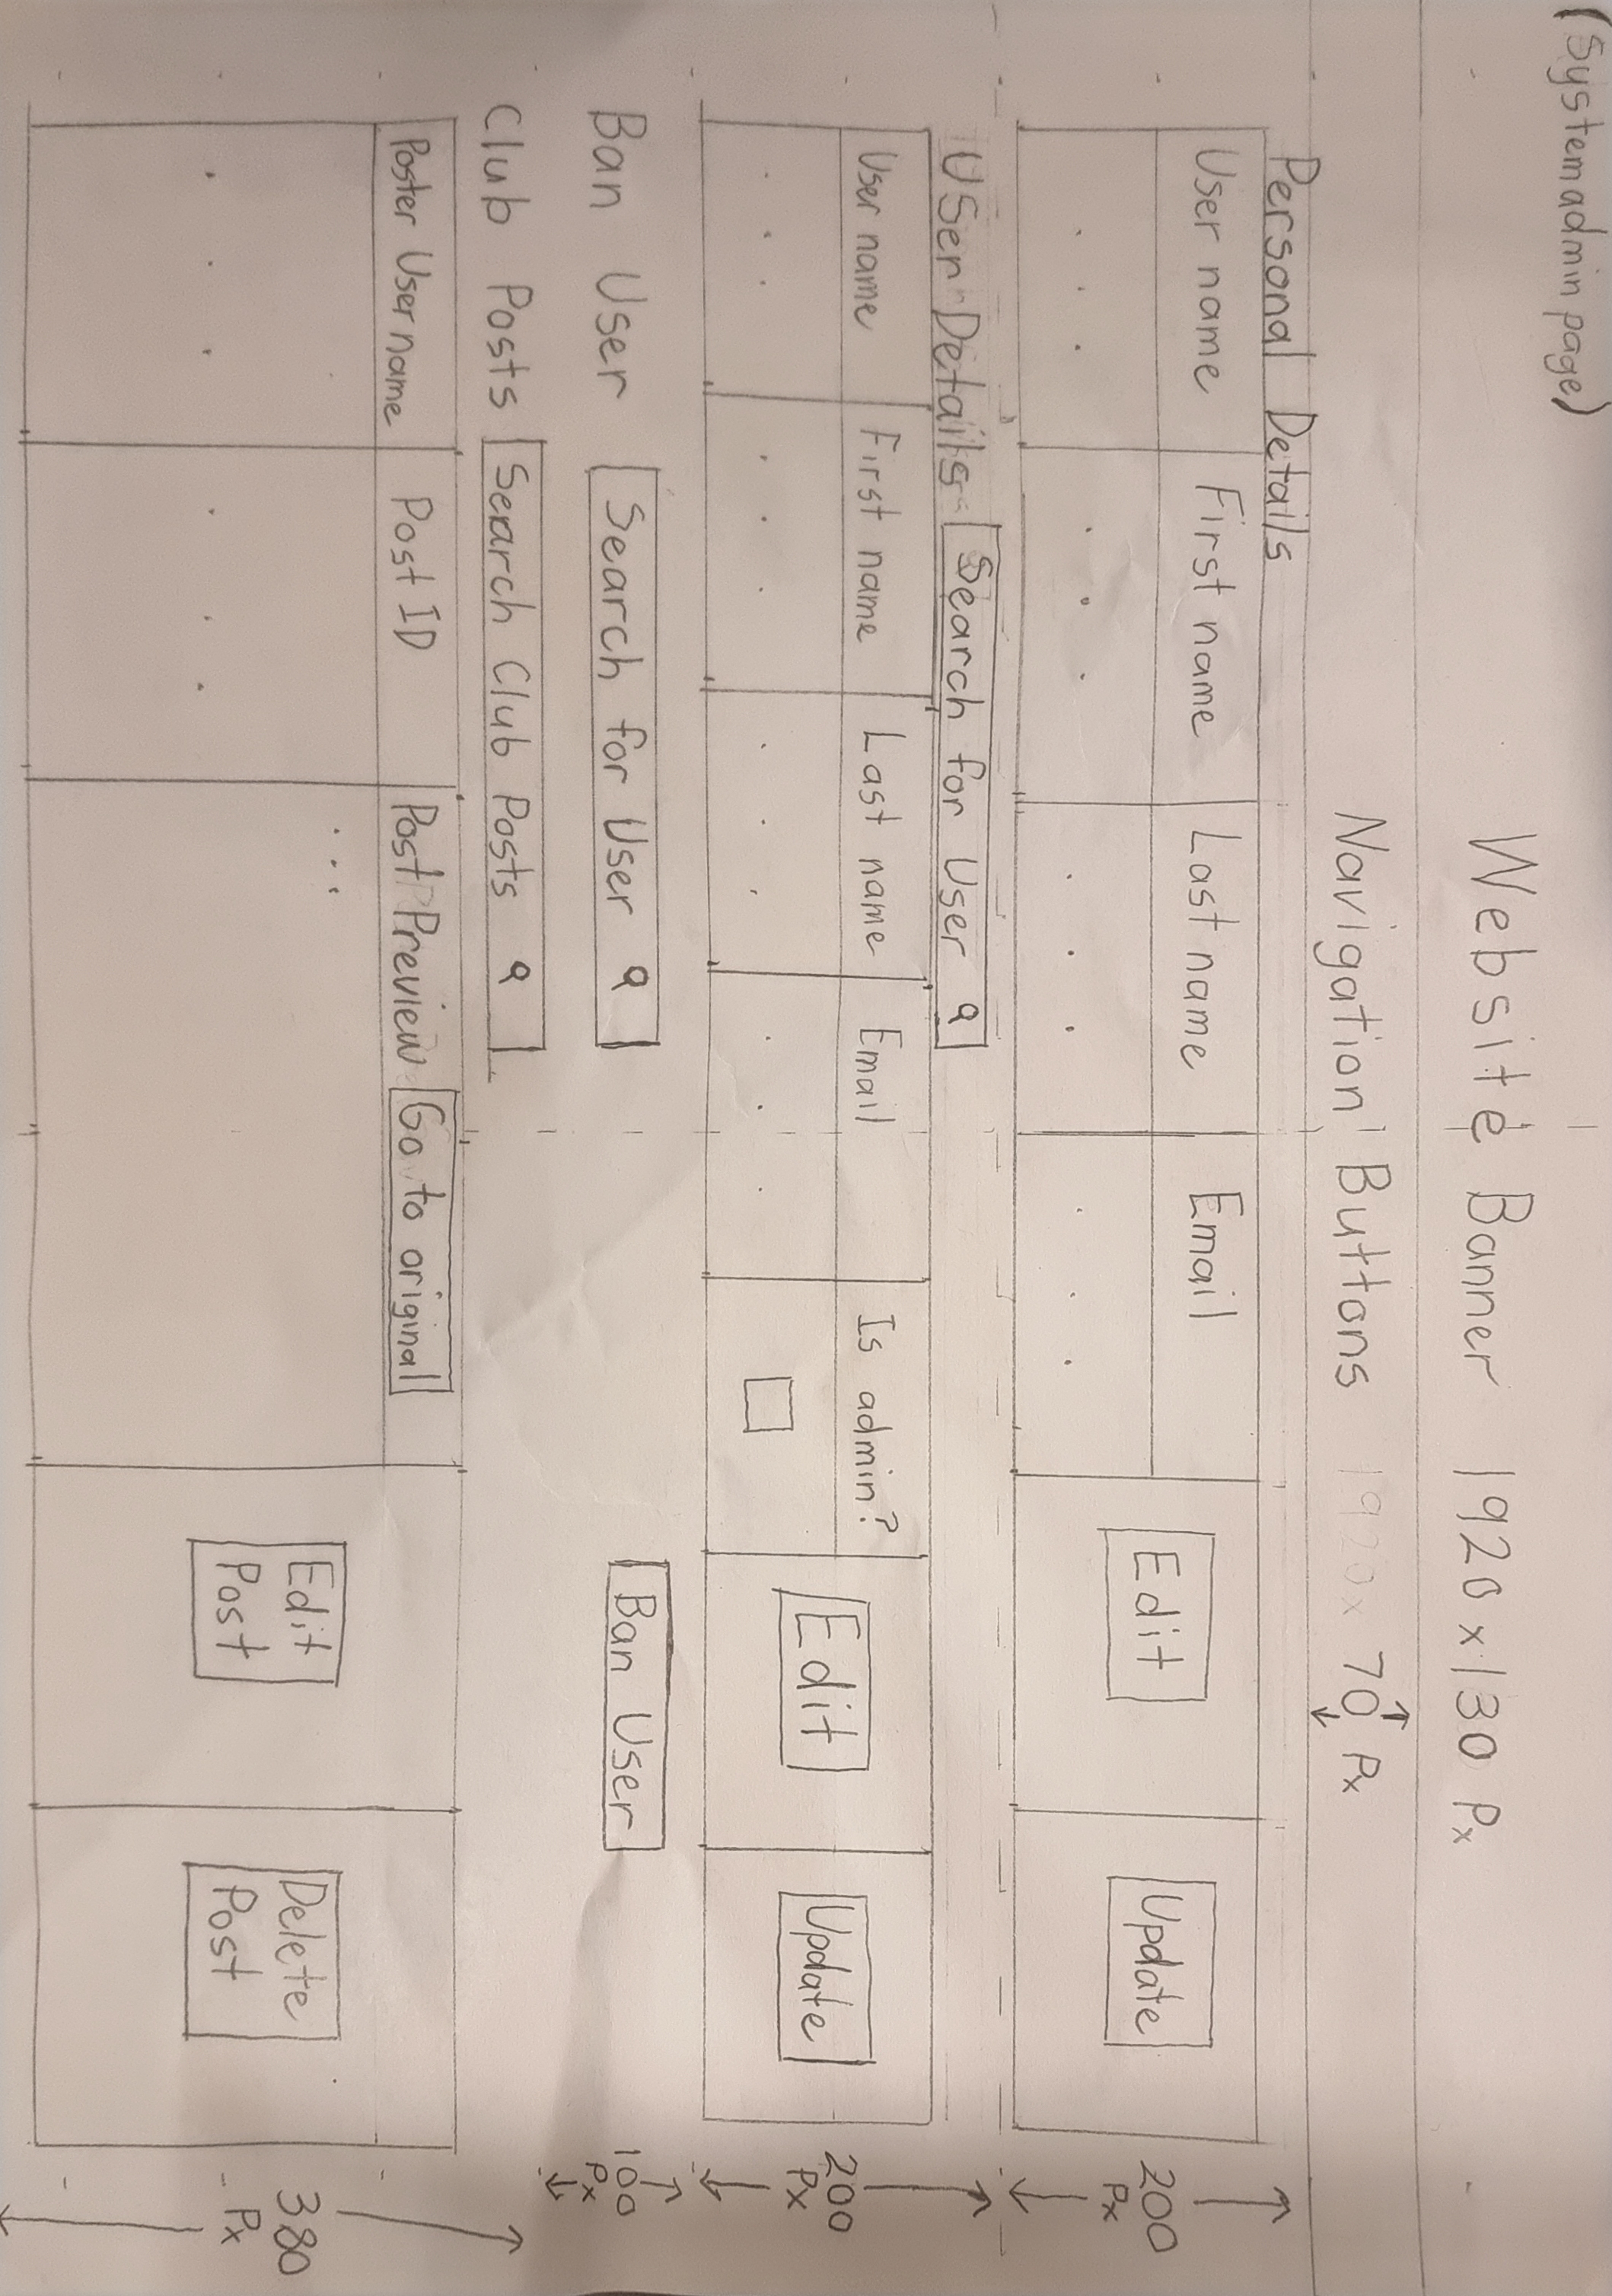 (System admin page)
Website Banner 1920 x 130 Px
Navigation Buttons 1920x 70 Px
Personal Details
User name First name Last name Email Edit Update
200
Px
. . . . . . . . . . . .
User Details Search for User
User name First name Last name Email Is admin? Edit Update
200
Px
. . . . . . . . . . . .
Ban User Search for User Ban User
100
Px
Club Posts Search Club Posts
Poster User name Post ID Post Preview Go to original
...
Edit
Post
Delete
Post
380
Px
. . . . . .